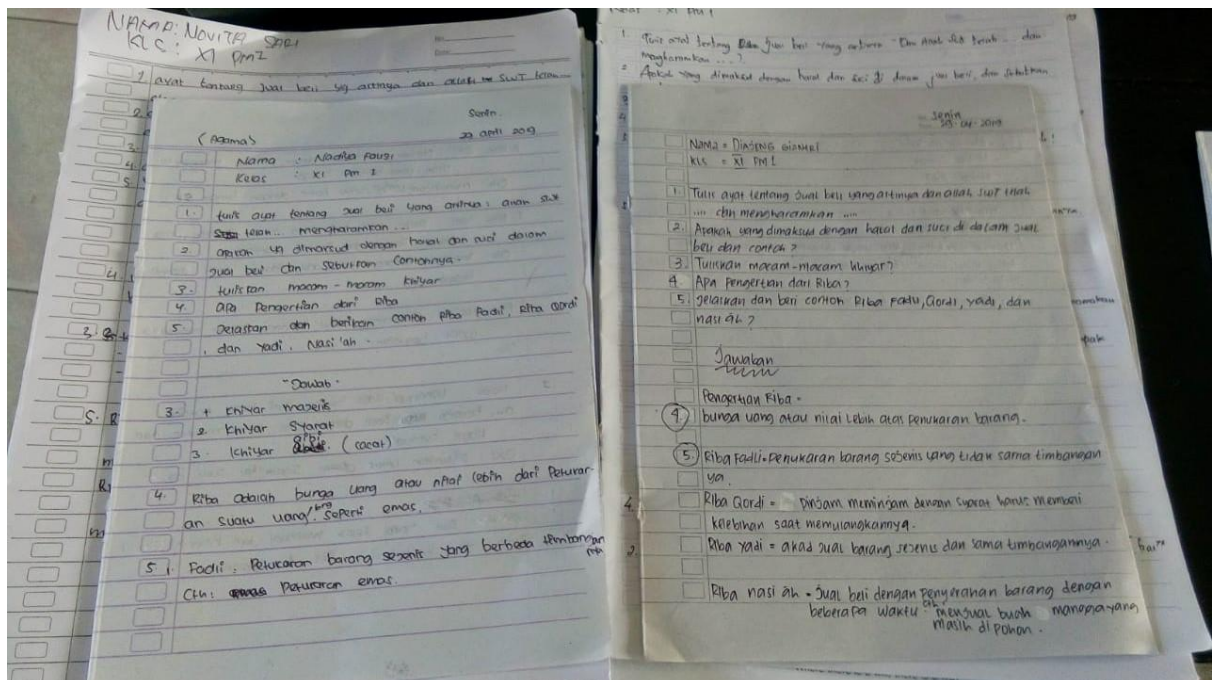 NAMA: NOVITA SARI
KLS : XI PM2
1 ayat tentang Jual beli yg artinya dan allah SWT telah
Senin
(Agama)
29 april 2019
Nama : Nadita Fauzi
Kelas : XI Pm 1
1. tulis ayat tentang jual beli yang artinya: allah swt
telah... mengharamkan ...
2 apakah yg dimaksud dengan halal dan suci dalam
jual beli dan sebutkan contohnya.
3. tuliskan macam - macam khiyar
4. apa Pengertian dari Riba
5. Jelaskan dan berikan contoh Riba Fadli, Riba Qordi
, dan Yadi, Nasi'ah.
"Jawab"
3. + Khiyar majelis
2. Khiyar Syarat
3. Khiyar aibi (cacat)
4. Riba adalah bunga uang atau nilai lebih dari Penukar-
an suatu uang/brg seperti emas.
5. 1. Fadli: Penukaran barang sejenis yang berbeda timbangan
nya
Cth: Penukaran emas.
Kelas : XI PM 1
1. Tulis ayat tentang jual beli yang artinya "Dan Allah SWT telah ... dan
mengharamkan ... ?
2 Apakah yang dimaksud dengan halal dan suci di dalam jual beli, dan sebutkan
Senin
29-04-2019
Nama =
KLS = XI PM 1
1. Tulis ayat tentang Jual beli yang artinya dan allah SWT telah
.... dan mengharamkan ....
2. Apakah yang dimaksud dengan halal dan suci di dalam Jual
beli dan contoh?
3. Tuliskan macam-macam khiyar?
4. Apa Pengertian dari Riba?
5. Jelaskan dan beri contoh Riba Fadli, Qordi, yadi, dan
nasi'ah?
Jawaban
Pengertian Riba =
4. bunga uang atau nilai lebih atas penukaran barang.
5. Riba Fadli = penukaran barang sejenis yang tidak sama timbangan
ya.
Riba Qordi = Pinjam meminjam dengan syarat harus memberi
kelebihan saat memulangkannya.
Riba Yadi = akad jual barang sejenis dan sama timbangannya.
Riba nasi'ah = Jual beli dengan Penyerahan barang dengan
beberapa waktu
menjual buah mangga yang
masih di pohon.